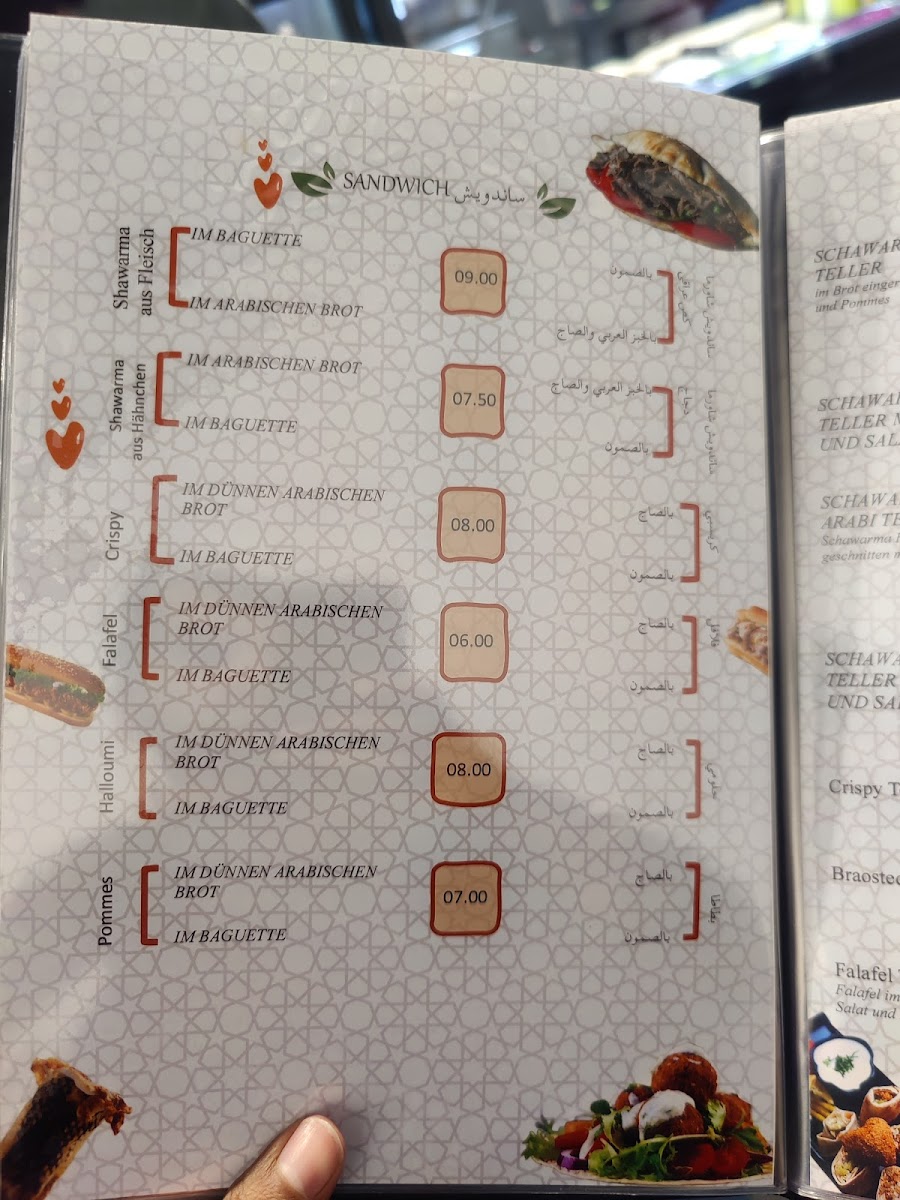 SANDWICH ساندويش
Shawarma
aus Fleisch
IM BAGUETTE
IM ARABISCHEN BROT
09.00
بالصمون
بالخبز العربي والصاج
ساندويش شاورما
كص عراقي
Shawarma
aus Hähnchen
IM ARABISCHEN BROT
IM BAGUETTE
07.50
بالخبز العربي والصاج
بالصمون
ساندويش شاورما
دجاج
Crispy
IM DÜNNEN ARABISCHEN
BROT
IM BAGUETTE
08.00
بالصاج
بالصمون
كريسبي
Falafel
IM DÜNNEN ARABISCHEN
BROT
IM BAGUETTE
06.00
بالصاج
بالصمون
فلافل
Halloumi
IM DÜNNEN ARABISCHEN
BROT
IM BAGUETTE
08.00
بالصاج
بالصمون
حلومي
Pommes
IM DÜNNEN ARABISCHEN
BROT
IM BAGUETTE
07.00
بالصاج
بالصمون
بطاطا
SCHAWAR
TELLER
im Brot einger
und Pommes
SCHAWA
TELLER
UND SAL
SCHAWA
ARABI TE
Schawarma
geschnitten
SCHAWA
TELLER
UND SA
Crispy T
Braosted
Falafel
Falafel im
Salat und